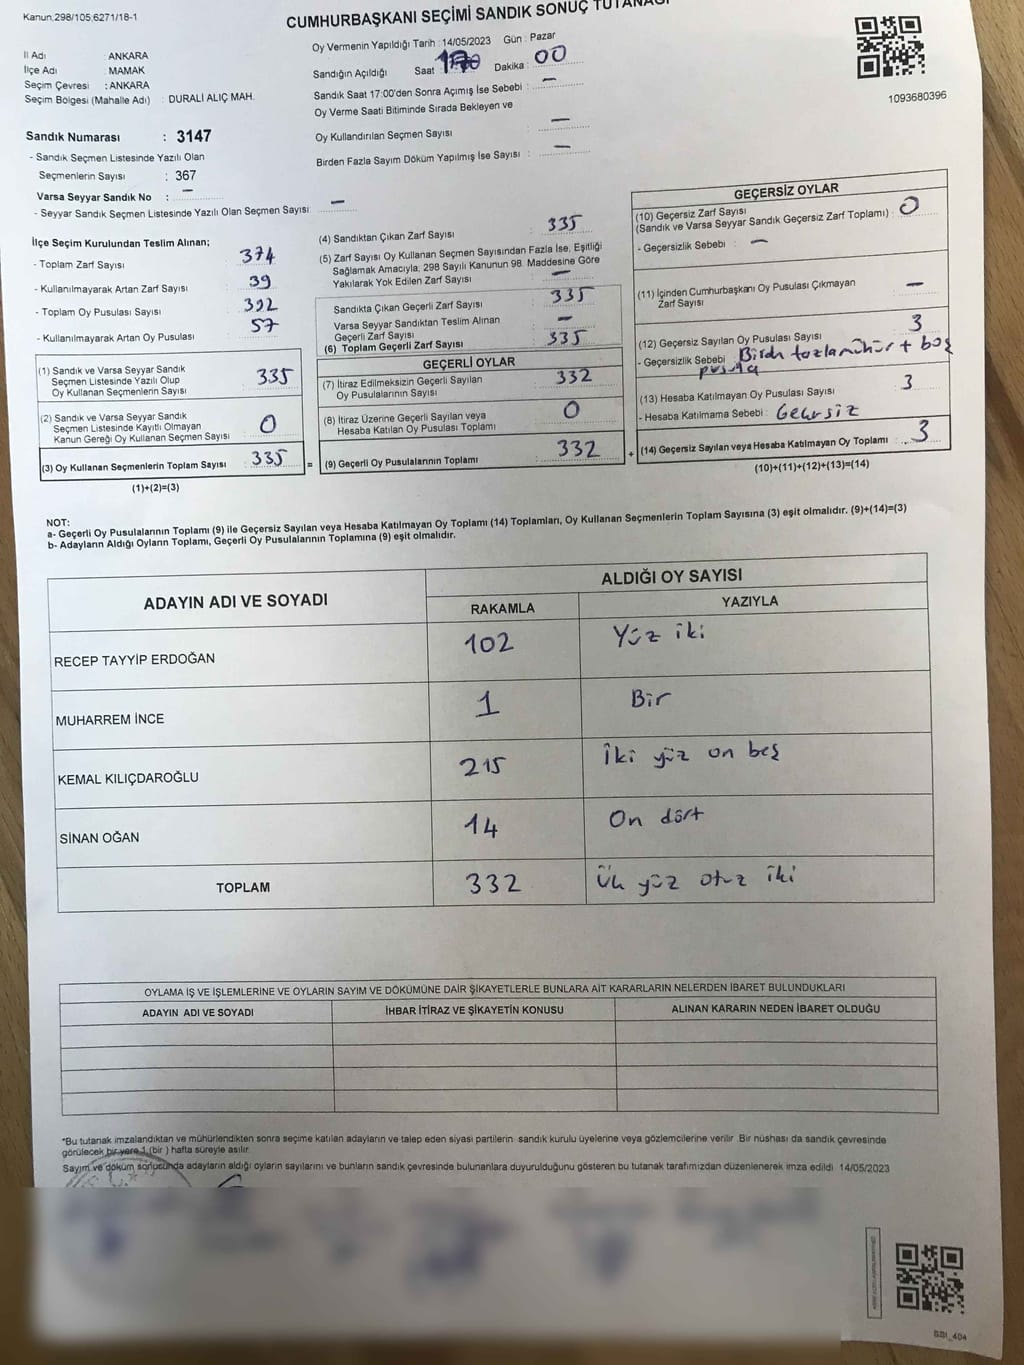 Kanun,298/105,6271/18-1
CUMHURBAŞKANI SEÇİMİ SANDIK SONUÇ TUTANAĞI
İl Adı : ANKARA
İlçe Adı : MAMAK
Seçim Çevresi : ANKARA
Seçim Bölgesi (Mahalle Adı) : DURALİ ALIÇ MAH.
Sandık Numarası : 3147
- Sandık Seçmen Listesinde Yazılı Olan
Seçmenlerin Sayısı : 367
Varsa Seyyar Sandık No : -
- Seyyar Sandık Seçmen Listesinde Yazılı Olan Seçmen Sayısı: -
Oy Vermenin Yapıldığı Tarih : 14/05/2023 Gün : Pazar
Sandığın Açıldığı Saat Dakika : 00
Sandık Saat 17:00'den Sonra Açımış İse Sebebi : -
Oy Verme Saati Bitiminde Sırada Bekleyen ve
Oy Kullandırılan Seçmen Sayısı : -
Birden Fazla Sayım Döküm Yapılmış İse Sayısı : -
1093680396
İlçe Seçim Kurulundan Teslim Alınan;
- Toplam Zarf Sayısı : 374
- Kullanılmayarak Artan Zarf Sayısı : 39
- Toplam Oy Pusulası Sayısı : 392
- Kullanılmayarak Artan Oy Pusulası : 57
(1) Sandık ve Varsa Seyyar Sandık
Seçmen Listesinde Yazılı Olup
Oy Kullanan Seçmenlerin Sayısı : 335
(2) Sandık ve Varsa Seyyar Sandık
Seçmen Listesinde Kayıtlı Olmayan
Kanun Gereği Oy Kullanan Seçmen Sayısı : 0
(3) Oy Kullanan Seçmenlerin Toplam Sayısı : 335
(1)+(2)=(3)
(4) Sandıktan Çıkan Zarf Sayısı : 335
(5) Zarf Sayısı Oy Kullanan Seçmen Sayısından Fazla İse, Eşitliği
Sağlamak Amacıyla, 298 Sayılı Kanunun 98. Maddesine Göre
Yakılarak Yok Edilen Zarf Sayısı : -
Sandıkta Çıkan Geçerli Zarf Sayısı : 335
Varsa Seyyar Sandıktan Teslim Alınan
Geçerli Zarf Sayısı : -
(6) Toplam Geçerli Zarf Sayısı : 335
GEÇERLİ OYLAR
(7) İtiraz Edilmeksizin Geçerli Sayılan
Oy Pusulalarının Sayısı : 332
(8) İtiraz Üzerine Geçerli Sayılan veya
Hesaba Katılan Oy Pusulası Toplamı : 0
= (9) Geçerli Oy Pusulalarının Toplamı : 332
GEÇERSİZ OYLAR
(10) Geçersiz Zarf Sayısı
(Sandık ve Varsa Seyyar Sandık Geçersiz Zarf Toplamı) : 0
- Geçersizlik Sebebi : -
(11) İçinden Cumhurbaşkanı Oy Pusulası Çıkmayan
Zarf Sayısı : -
(12) Geçersiz Sayılan Oy Pusulası Sayısı : 3
- Geçersizlik Sebebi : Birdn fazlamühür + boş
pusula
(13) Hesaba Katılmayan Oy Pusulası Sayısı : 3
- Hesaba Katılmama Sebebi : Gecersiz
+ (14) Geçersiz Sayılan veya Hesaba Katılmayan Oy Toplamı : 3
(10)+(11)+(12)+(13)=(14)
NOT:
a- Geçerli Oy Pusulalarının Toplamı (9) ile Geçersiz Sayılan veya Hesaba Katılmayan Oy Toplamı (14) Toplamları, Oy Kullanan Seçmenlerin Toplam Sayısına (3) eşit olmalıdır. (9)+(14)=(3)
b- Adayların Aldığı Oyların Toplamı, Geçerli Oy Pusulalarının Toplamına (9) eşit olmalıdır.
ADAYIN ADI VE SOYADI ALDIĞI OY SAYISI
RAKAMLA YAZIYLA
RECEP TAYYİP ERDOĞAN 102 Yüz iki
MUHARREM İNCE 1 Bir
KEMAL KILIÇDAROĞLU 215 İki yüz on beş
SİNAN OĞAN 14 On dört
TOPLAM 332 Üç yüz otuz iki
OYLAMA İŞ VE İŞLEMLERİNE VE OYLARIN SAYIM VE DÖKÜMÜNE DAİR ŞİKAYETLERLE BUNLARA AİT KARARLARIN NELERDEN İBARET BULUNDUKLARI
ADAYIN ADI VE SOYADI İHBAR İTİRAZ VE ŞİKAYETİN KONUSU ALINAN KARARIN NEDEN İBARET OLDUĞU
*Bu tutanak imzalandıktan ve mühürlendikten sonra seçime katılan adayların ve talep eden siyasi partilerin sandık kurulu üyelerine veya gözlemcilerine verilir. Bir nüshası da sandık çevresinde
görülecek bir yere 1 (bir ) hafta süreyle asılır.
Sayım ve döküm sonucunda adayların aldığı oyların sayılarını ve bunların sandık çevresinde bulunanlara duyurulduğunu gösteren bu tutanak tarafımızdan düzenlenerek imza edildi. 14/05/2023
SSI_404